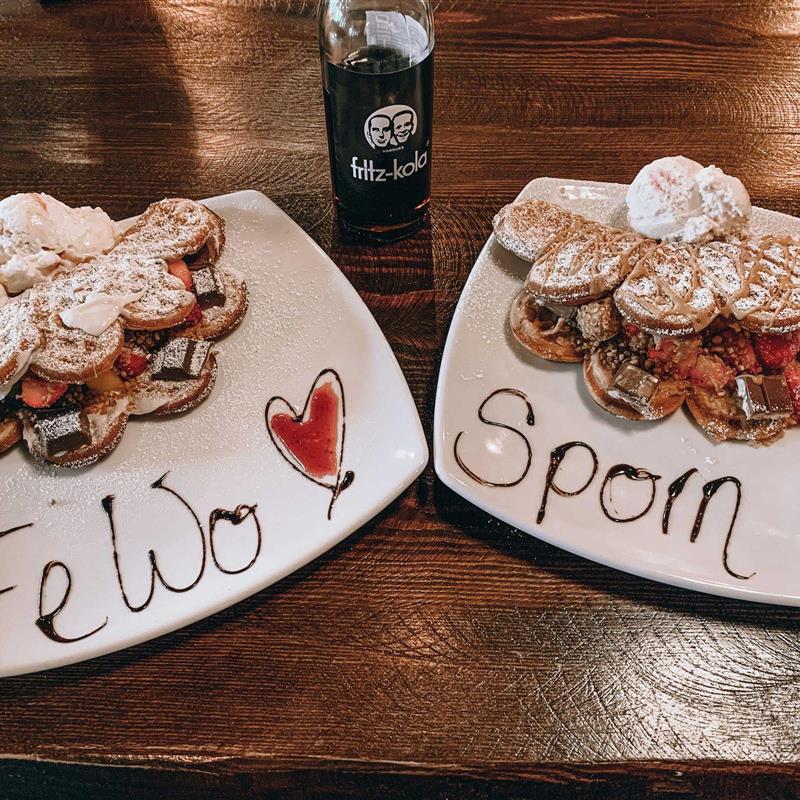 HAMBURG
fritz-kola
FeWo
Spoin